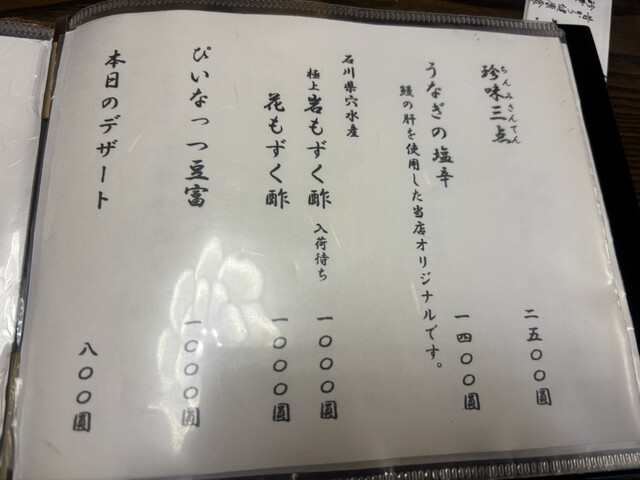 珍味三点
ちんみさんてん
二五〇〇圓
うなぎの塩辛
一四〇〇圓
鰻の肝を使用した当店オリジナルです。
石川県穴水産
極上 岩もずく酢 入荷待ち
一〇〇〇圓
花もずく酢
一〇〇〇圓
ぴいなっつ豆富
一〇〇〇圓
本日のデザート
八〇〇圓